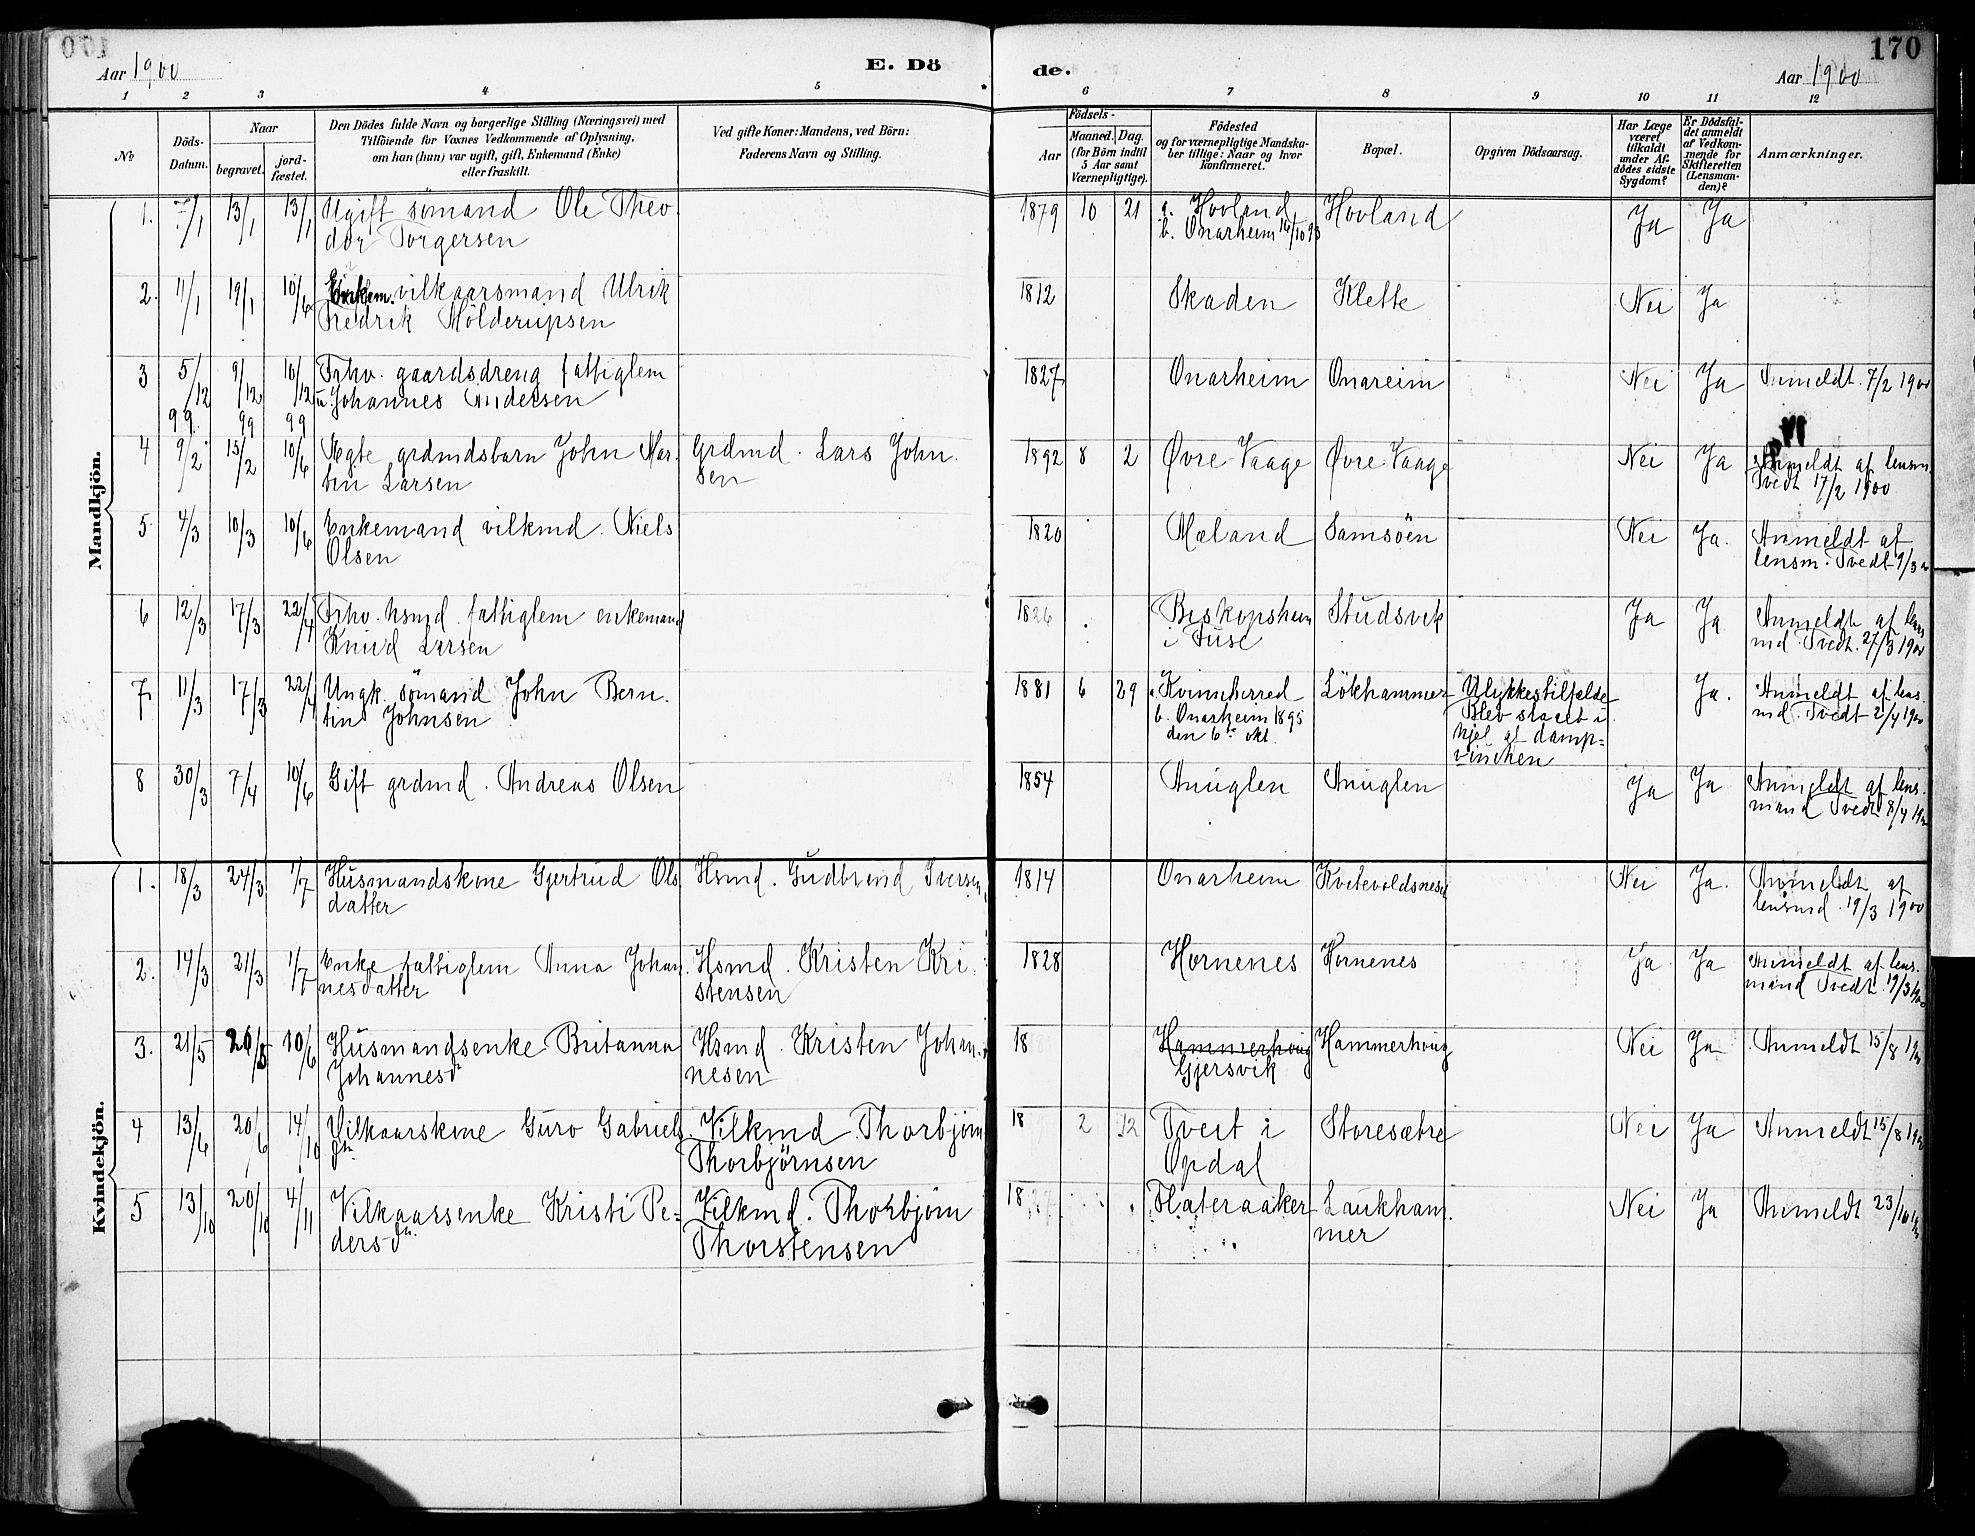 170
Aar 1900
E. Dö
de.
Aar 1900
1 2 3 4 5 6 7 8 9 10 11 12
No
Döds-
Datum.
Naar
begravet.
jord-
fæstet.
Den Dödes fulde Navn og borgerlige Stilling (Næringsvei) med
Tilföiende for Voxnes Vedkommende af Oplysning,
om han (hun) var ugift, gift, Enkemand (Enke)
eller fraskilt.
Ved gifte Koner: Mandens, ved Börn:
Faderens Navn og Stilling.
Födsels-
Aar
Maaned.
Dag.
(for Börn indtil
5 Aar samt
Værnepligtige).
Födested
og for værnepligtige Mandska-
ber tillige: Naar og hvor
konfirmeret.
Bopæl.
Opgiven Dödsaarsag.
Har Læge
været
tilkaldt
under Af-
dödes sidste
Sygdom?
Er Dödsfal-
det anmeldt
af Vedkom-
mende for
Skifteretten
(Lensman-
den)?
Anmærkninger.
Mandkjön.
1. 7/1 13/1 13/1 Ugift sömand Ole Theo-
dor Torgersen
1879 10 21 a. Hovland
b. Onarheim
Hovland Ja Ja
2. 11/1 19/1 10/6 Enkem. vilkaarsmand Ulrik
Fredrik Mölderupsen
1812 Skaden Klette Nei Ja
3 5/12 99 9/12 99 10/12 99 Frhv. gaardsdreng fattiglem
u. Johannes Andersen
1827 Onarheim Onareim Nei Ja Anmeldt 7/2 1900
4 9/2 15/2 10/6 Ægte grdmdsbarn John Mar-
tin Larsen
Grdmd. Lars John-
sen
1892 8 2 Øvre Vaage Øvre Vaage Nei Ja Anmeldt af lensm.
Tvedt 17/2 1900
5. 4/3 10/3 10/6 Enkemand vilkmd. Niels
Olsen
1820 Mæland Samsöen Nei Ja. Anmeldt af
lensm. Tvedt 9/3
6 12/3 17/3 22/4 Frhv. hsmd. fattiglem enkemand
Knud Larsen
1826 Biskopshavn
i Fuse
Studsvik Ja Ja Anmeldt af lens
md. Tvedt. 27/3 1900
7. 11/3 17/3 22/4 Ungk. sömand John Bern-
tin Johnsen
1881 6 29 a. Kvinnherred
b. Onarheim 1895
den 6te okt.
Lökhammer Ulykkestilfælde
Blev slaaet i
hjel af damp-
vinchen
Ja. Anmeldt af lens-
md. Tvedt 2/4 1900
8 30/3 7/4 10/6 Gift grdmd. Andreas Olsen
1854 Anuglen Anuglen Ja Ja Anmeldt af lens-
mand Tvedt 8/4 1900
Kvindekjön.
1. 18/3 24/3 1/7 Husmandskone Gjertrud Ols
datter
Hsmd. Gudbrand Iversen
1814 Onarheim Kvitevoldsneset Nei Ja. Anmeldt af
lensmd. 19/3 1900
2. 14/3 21/3 1/7 Enke fattiglem Anna Johan
nesdatter
Hsmd. Kristen Kri-
stensen
1828 Hornenes Hornenes Ja Ja Anmeldt af lens-
mand Tvedt. 19/3 1900
3. 21/5 26/5 10/6 Husmandsenke Britanna
Johannesd
Hsmd. Kristen Johan-
nesen
18 Hammerhoug
Gjersvik
Hammerhoug Nei Ja Anmeldt 15/8 1900
4 13/6 20/6 14/10 Vilkaarskone Guro Gabriels
dtr.
Vilkmd. Thorbjörn
Thorbjörnsen
18 2 12 Tveit i
Opdal
Storesætre Nei Ja Anmeldt 15/8 1900
5 13/10 20/10 4/11 Vilkaarsenke Kristi Pe-
dersd
Vilkmd. Thorbjörn
Thorstensen
18 Flateraaker Laukham
mer
Nei Ja Anmeldt 23/10